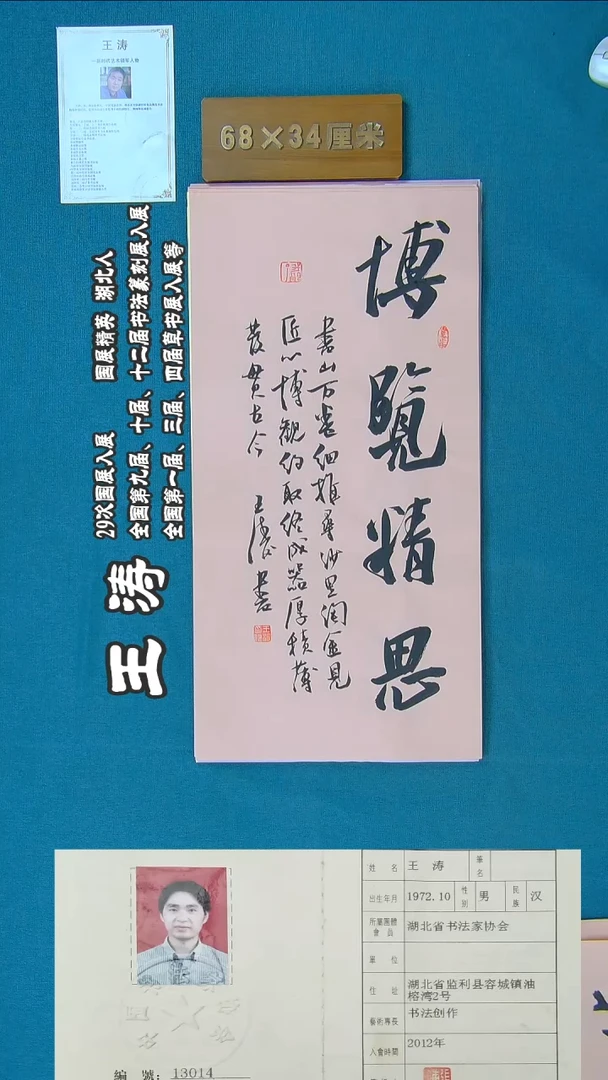 王 涛
68×34厘米
博覽精思
書山万卷细推尋沙里淘金見
匠心博觀约取终成器厚積薄
發貫古今 王涛書
29次国展入展 国展精英 湖北人
全国第九届、十届、十二届书法篆刻展入展
全国第一届、三届、四届草书展入展等
王涛
姓名 王 涛 筆名
出生年月 1972.10 性别 男 民族 汉
所屬團體會員 湖北省书法家协会
單位
住址 湖北省监利县容城镇油榕湾2号
藝術專長 书法创作
入會時間 2012年
編號: 13014